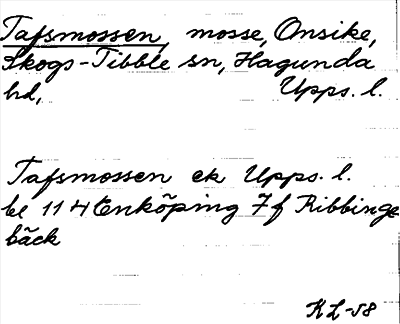 Tafsmossen, mosse, Onsike,
Skogs-Tibble sn, Hagunda
hd, Upps. l.
Tafsmossen ek Upps. l.
bl 11 4 Enköping 7f Ribbinge
bäck
KL-58